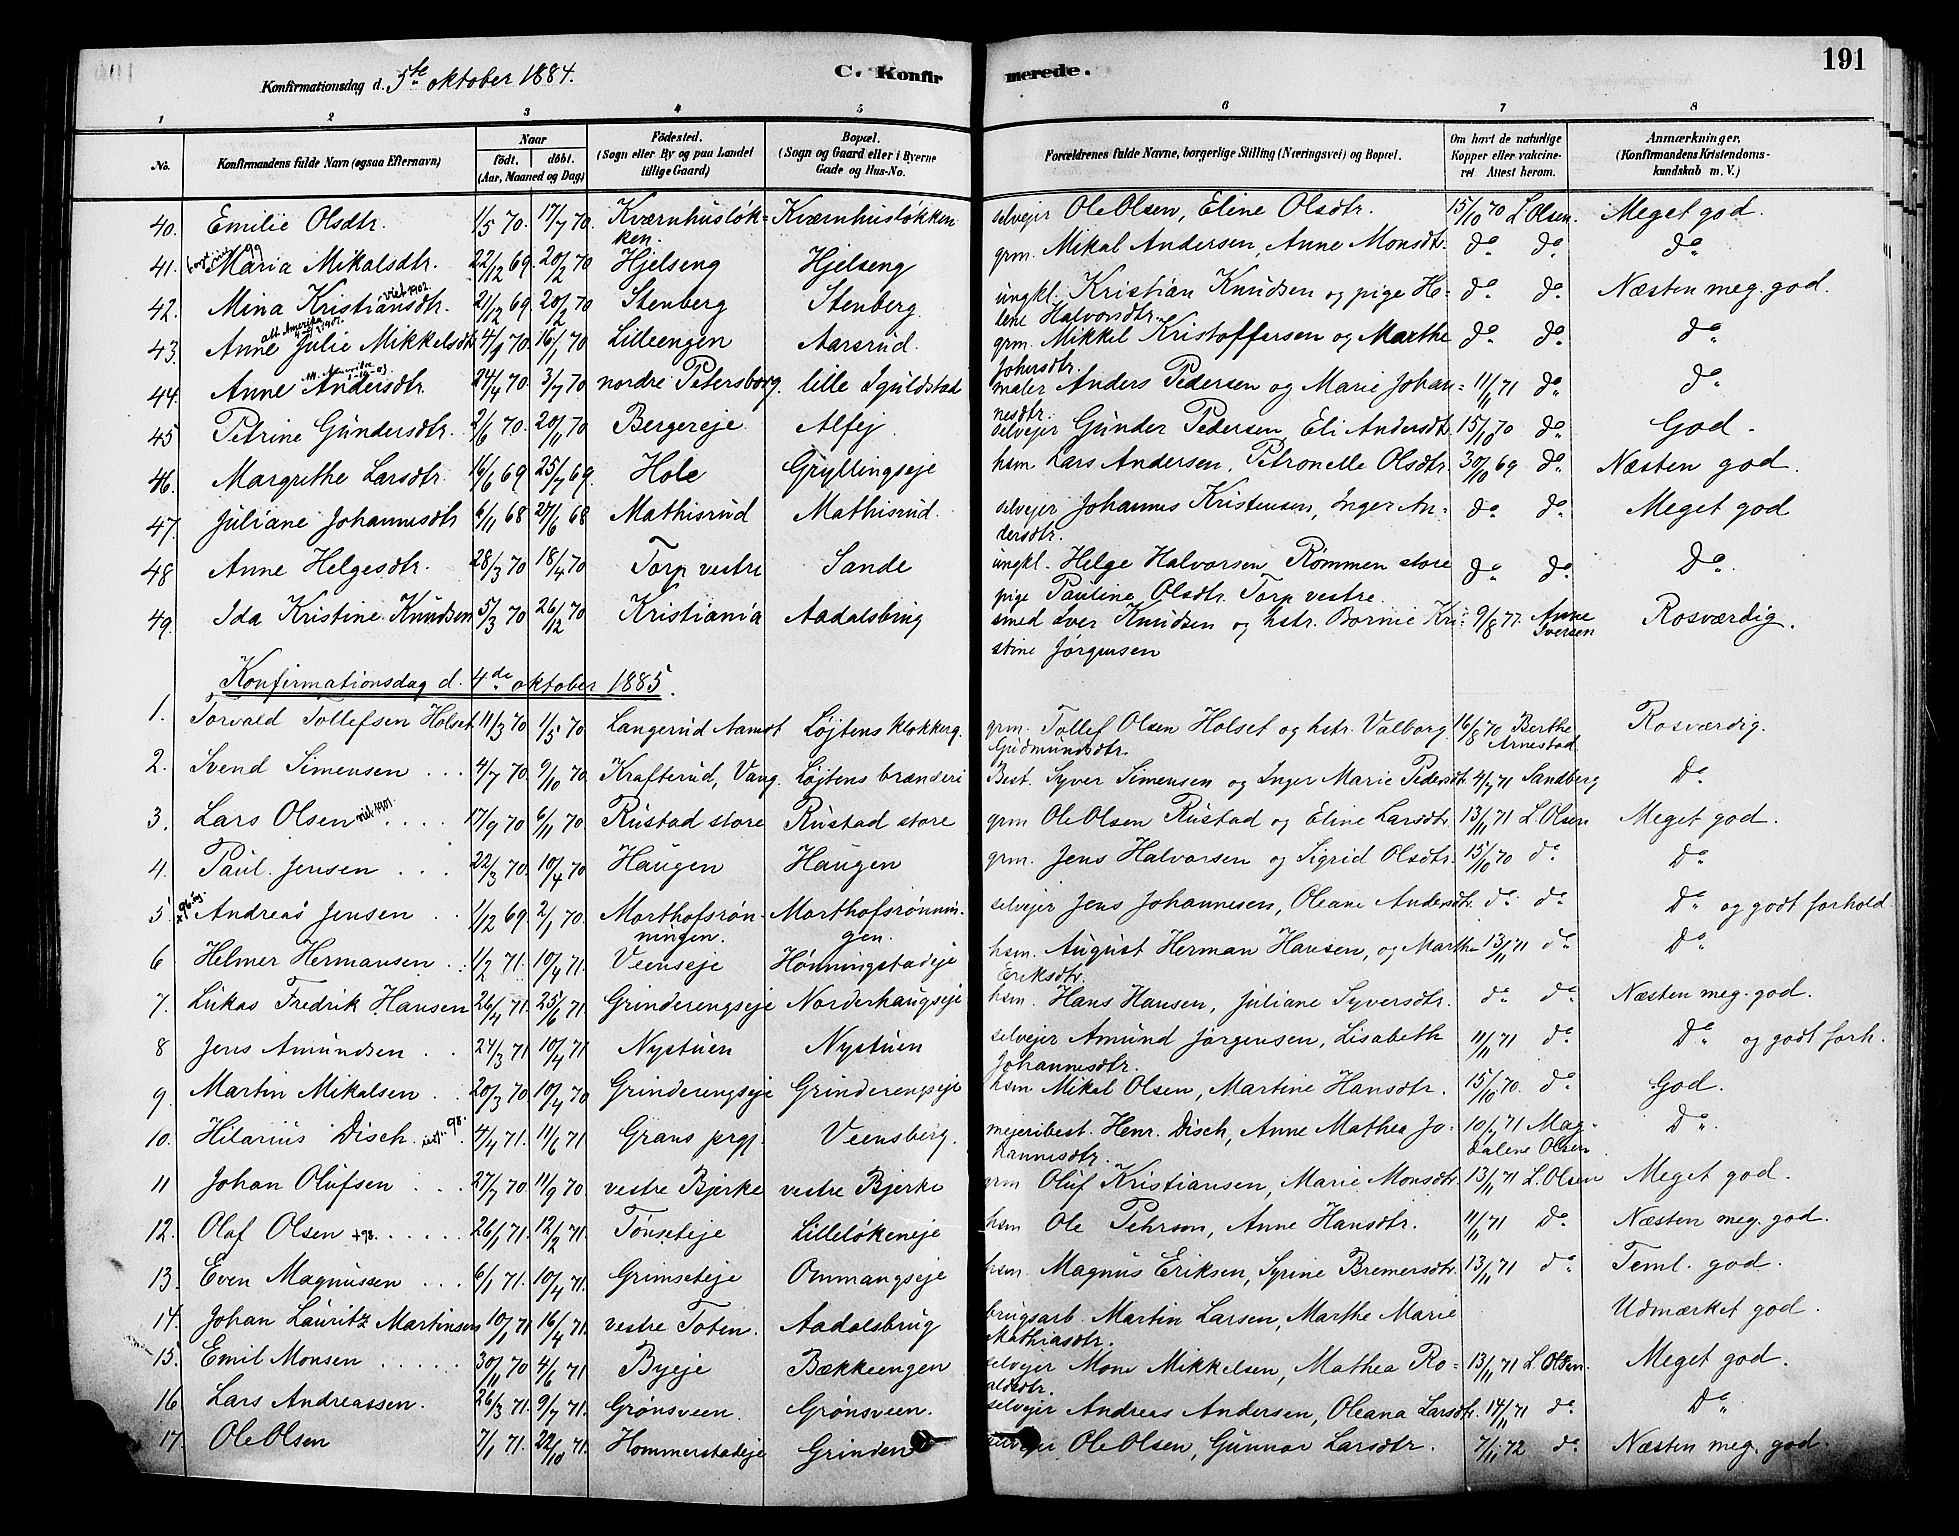 191
Konfirmationsdag d. 5te oktober 1884.
C. Konfirmerede.
1 2 3 4 5 6 7 8
No. Konfirmandens fulde Navn (ogsaa Efternavn) Naar födt. döbt. (Aar, Maaned og Dag) Födested. (Sogn eller By og paa Landet tillige Gaard) Bopæl. (Sogn og Gaard eller i Byerne Gade og Hus-No. Forældrenes fulde Navne, borgerlige Stilling (Næringsvei) og Bopæl. Om havt de naturlige Kopper eller vakcineret Attest herom. Anmærkninger. (Konfirmandens Kristendomskundskab m. V.)
40. Emilie Olsdtr. 1/5 70. 17/7 70. Kværnhusløkken. Kværnhusløkken selvejer Ole Olsen, Eline Olsdtr. 15/10 70 L Olsen. Meget god.
41. Maria Mikalsdtr. 22/12 69. 20/2 70 Hjelseng Hjelseng grm. Mikal Andersen, Anne Monsdtr. do do do
42. Mina Kristiansdtr. viet 1902. 21/12 69 20/2 70 Stenberg Stenberg ungkl. Kristian Knudsen og pige Helene Halvorsdtr. do do Næsten meg. god.
43. Anne Julie Mikkelsdtr 4/1 70. 16/1 70 Lilleengen Aarsrud. grm. Mikkel Kristoffersen og Marthe Johersdtr. do do do
44. Anne Andersdtr. 24/4 70. 3/7 70. nordre Petersborg. lille Iguldstad maler Anders Pedersen og Marie Johannesdtr. 11/11 71 do do
45 Petrine Gundersdtr. 2/6 70. 20/11 70 Bergereje Alfej selvejer Gunder Pedersen, Eli Andersdtr. 15/10 70 do God.
46. Margrethe Larsdtr. 16/6 69 25/7 69. Hole Gryllingseje hsm Lars Andersen, Petronelle Olsdtr. 30/10 69 do Næsten god.
47. Juliane Johannesdtr 6/11 68 27/6 68 Mathisrud Mathisrud. selvejer Johannes Kristensen, Inger Andersdtr. do do Meget god
48 Anne Helgesdtr. 28/3 70 18/4 70 Torp vestre Sande ungkl. Helge Halvorsen, Rømmen store pige Pauline Olsdtr. Torp vestre. do do Do
49. Ida Kristine Knudsen 5/3 70. 26/12 70 Kristiania Aadalsbrug smed Iver Knudsen og hstr. Bornie Kristine Jørgensen 9/8 77. Anne Iversen Rosværdig.
Konfirmationsdag d. 4de oktober 1885.
1. Torvald Tollefsen Holset 11/3 70 1/5 70 Langerud Aamot Løjtens klokkerg. grm. Tollef Olsen Holset og hstr. Valborg Gudmundsdtr. 16/8 70 Berthe Arnestad Rosværdig.
2. Svend Simensen 4/7 70. 9/10 70. Krafterud, Vang. Løjtens brænderi Best. Syver Simensen og Inger Marie Pedersdtr. 4/7 71 Sandberg Do
3. Lars Olsen viet 1901. 17/9 70 6/11 70. Rustad store Rustad store grm Ole Olsen Rustad og Eline Larsdtr. 13/11 71 L. Olsen Meget god.
4. Paul Jensen 22/3 70. 10/4 70 Haugen Haugen grm. Jens Halvorsen og Sigrid Olsdtr. 15/10 70 do Do
5. Andreas Jensen 1/12 69 2/1 70. Morthofsrønningen. Morthofsrønningen. selvejer Jens Johannesen, Oleane Andersdtr. do do Do og godt forhold
6 Helmer Hermansen 1/2 71. 10/4 71. Veenseje Hønningstadeje hsm. August Herman Hansen, og Marthe Eriksdtr. 13/11 71 do Do
7. Lukas Fredrik Hansen 26/4 71. 25/6 71. Grinderengseje Norderhaugseje hsm. Hans Hansen, Juliane Syversdtr. do do Næsten meg. god.
8 Jens Amundsen 27/3 71 10/4 71 Nystuen Nystuen selvejer Amund Jørgensen, Lisabeth Johannesdtr. 11/11 71 do Do og godt forh.
9. Martin Mikalsen 20/3 70 10/4 70 Grinderengseje Grinderengseje hsm Mikal Olsen, Martine Hansdtr. 15/10 70. do God.
10. Hilarius Disch. viet 98. 4/4 71. 11/6 71 Grans prgj. Veensberg. mejeribest. Henr. Disch, Anne Mathea Johannesdtr. 10/7 71 Magdalene Olsen Do
11 Johan Olufsen 27/7 70 11/9 70 vestre Bjerke vestre Bjerke grm Oluf Kristiansen, Marie Monsdtr. 13/11 71 L. Olsen Meget god.
12. Olaf Olsen +98. 26/1 71. 12/2 71. Tønseteje Lilleløkeneje hsm Ole Pehrson, Anne Hansdtr. 11/11 71 Do Næsten meg. god.
13. Even Magnussen 6/1 71. 10/4 71. Grimseteje Ommangseje hsm. Magnus Eriksen, Syrine Bremersdtr. 13/11 71 do Teml. god.
14. Johan Lauritz Martinsen 10/1 71 16/4 71. vestre Toten. Aadalsbrug brugsarb. Martin Larsen, Marthe Marie Mathiasdtr. Udmærket god.
15. Emil Monsen 30/11 70 4/6 71 Byeje Bækkeengen selvejer Mons Mikkelsen, Mathea Roaldsdtr. 13/11 71 L. Olsen. Meget god.
16 Lars Andreassen. 26/3 71. 9/7 71. Grønsveen. Grønsveen. selvejer Andreas Andersen, Oleana Larsdtr. 14/11 71 do Do
17. Ole Olsen 7/1 71. 22/10 71. Hommerstadeje Grinden selvejer Ole Olsen, Gunnor Larsdtr. 7/11 72 do Næsten meg. god.